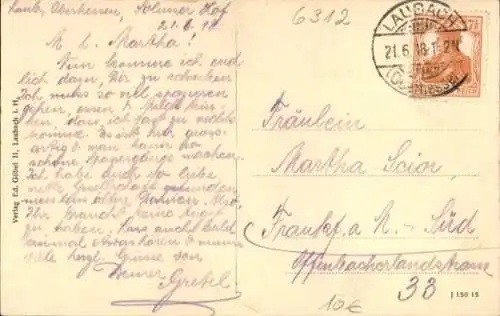 Laubach, Oberhessen, Solmser Hof
21.6.18
M. l. Martha!
Nun komme ich end
lich dazu, Dir zu schreiben
Ich muss so viel spazieren
gehen, essen & Milch trin
ken, dass ich fast zu nichts
komme. Es ist hier gross
artig & man kann so
schöne Spaziergänge machen.
Ich habe auch so liebe
nette Gesellschaft gefunden
meistens ältere Damen. Also,
Ihr braucht keine Angst
zu haben. Lass auch bald
einmal etwas hören & nimm
viele herzl. Grüsse von
Deiner
Gretel
Verlag Ed. Göbel II, Laubach i. H.
6312
LAUBACH
21.6.18
(OBERHESSEN)
7½
Fräulein
Martha Scior,
Frankf. a M.-Süd
Offenbacherlandstrasse
33
10€
J 150 15